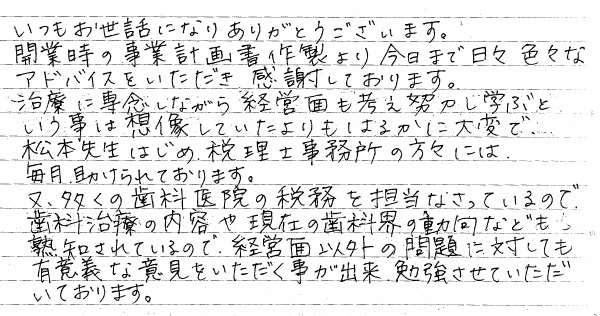 いつもお世話になりありがとうございます。
開業時の事業計画書作製より今日まで日々色々な
アドバイスをいただき感謝しております。
治療に専念しながら経営面も考え努力し学ぶと
いう事は想像していたよりもはるかに大変で…
松本先生はじめ、税理士事務所の方々には、
毎月、助けられております。
又、多くの歯科医院の税務を担当なさっているので、
歯科治療の内容や現在の歯科界の動向なども
熟知されているので、経営面以外の問題に対しても
有意義な意見をいただく事が出来、勉強させていただ
いております。